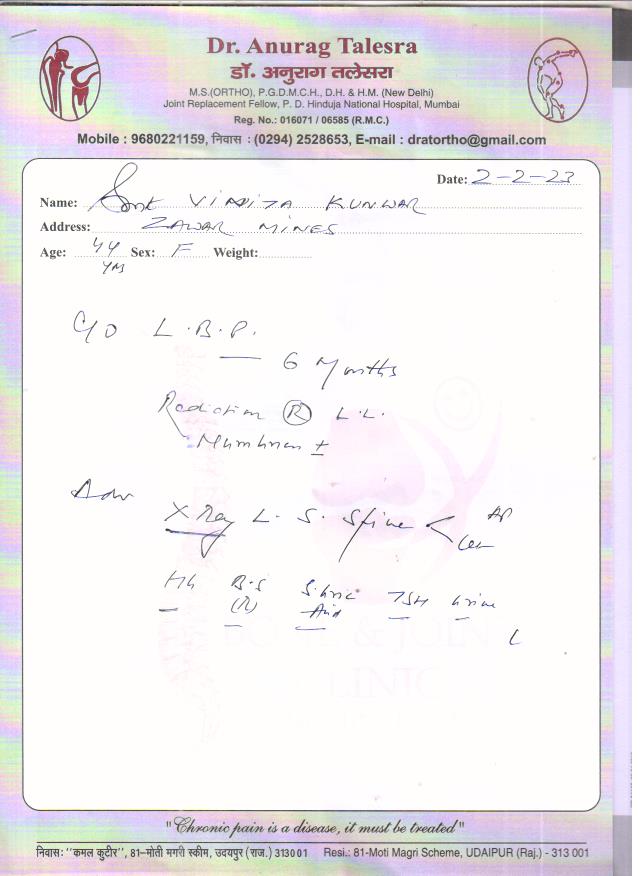 Dr. Anurag Talesra
डॉ. अनुराग तलेसरा
M.S.(ORTHO), P.G.D.M.C.H., D.H. & H.M. (New Delhi)
Joint Replacement Fellow, P. D. Hinduja National Hospital, Mumbai
Reg. No.: 016071 / 06585 (R.M.C.)
Mobile : 9680221159, निवास : (0294) 2528653, E-mail : dratortho@gmail.com
Date: 2-2-23
Name: VINITA KUNWAR
Address: ZAWAR MINES
Age: 44 Sex: F Weight:
C/O L.B.P.
6 Months
Radiation R L.L.
Numbness ±
Adv
X Ray L. S. Spine < AP
Hb B.S S. Uric TSH Urine
(R) Acid
BONE & JOINT
CLINIC
"Chronic pain is a disease, it must be treated"
निवास: "कमल कुटीर", 81-मोती मगरी स्कीम, उदयपुर (राज.) 313001 Resi.: 81-Moti Magri Scheme, UDAIPUR (Raj.) - 313 001